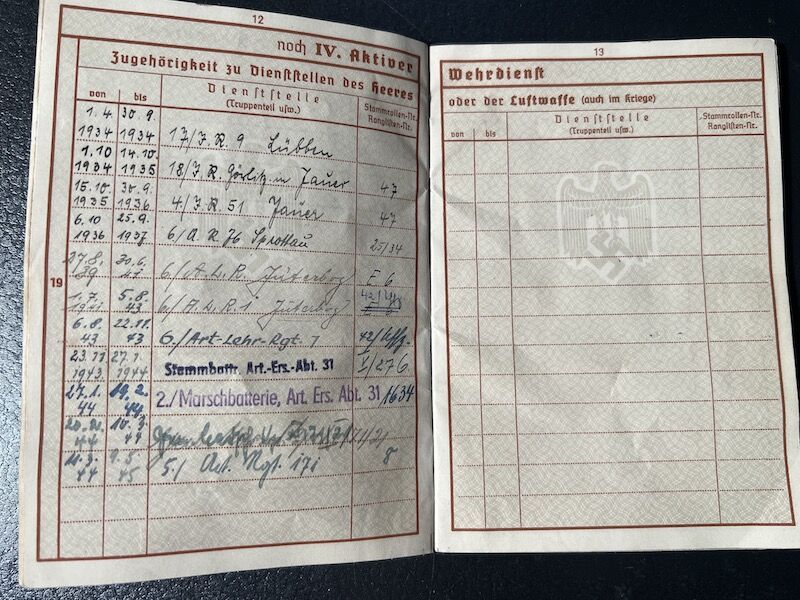 12
noch IV. Aktiver
Zugehörigkeit zu Dienststellen des Heeres
von bis Dienststelle (Truppenteil usw.) Stammrollen-Nr. Ranglisten-Nr.
1.4. 30.9.
1934 1934 17/J.R. 9 Lübben
1.10 14.10.
1934 1935 18/J.R. Görlitz in Jauer 47
15.10. 30.9.
1935 1936 4/J.R. 51 Jauer 47
6.10 25.9.
1936 1937 6/A.R. 76 Sprottau 25/34
19
27.8. 30.6.
39 41 6./A.L.R. Jüterbog E 6
1.7. 5.8. 42/
1941 43 6/A.L.R. 1 Jüterbog
6.8. 22.11.
43 43 6./Art-Lehr-Rgt. 1 42/
23.11. 27.1.
1943 1944 Stammbattr. Art.-Ers.-Abt. 31 I/276
27.1. 19.2.
44 44 2./Marschbatterie, Art. Ers. Abt. 31 /1634
44
5./ Art. Rgt. 171 8
44 45
13
Wehrdienst
oder der Luftwaffe (auch im Kriege)
von bis Dienststelle (Truppenteil usw.) Stammrollen-Nr. Ranglisten-Nr.